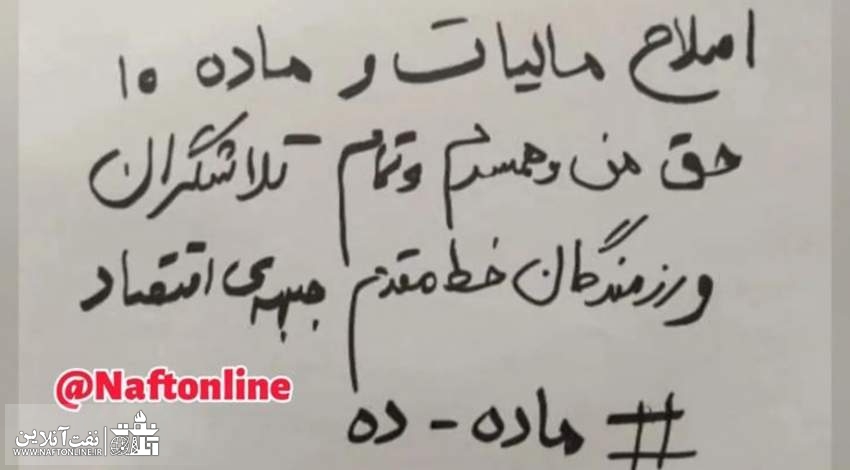 اصلاح مالیات و ماده ۱۰
حق من و همسرم و تمام تلاشگران
و رزمندگان خط مقدم جبهه‌ی اقتصاد
@Naftonline
# ماده - ده
نفت آنلاین
WWW.NAFTONLINE.IR